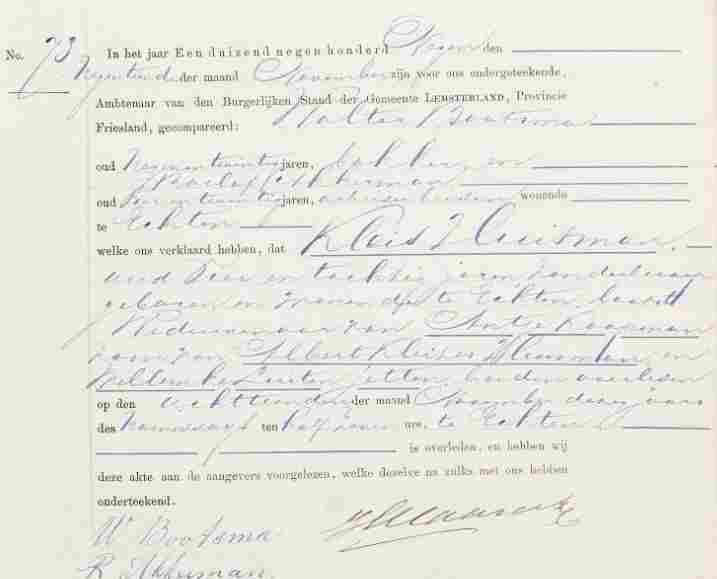 No. 73 In het jaar Een duizend negen honderd Negen den
Negentienden der maand November zijn voor ons ondergeteekende,
Ambtenaar van den Burgerlijken Stand der Gemeente LEMSTERLAND, Provincie
Friesland, gecompareerd: Wolter Bootsma
oud Negen en twintig jaren, bakker, en
Roelof Akkerman
oud en twintig jaren, wonende
te Echten
welke ons verklaard hebben, dat Klaas Huisman,
oud Vier en tachtig jaren zonder beroep
geboren en wonende te Echten
Weduwnaar van Antje Koopman
zoon van Albert Huisman en
Willemke beiden overleden
op den achttienden der maand November dezes jaars
des Namiddags ten half ure, te Echten
is overleden, en hebben wij
deze akte aan de aangevers voorgelezen, welke dezelve na zulks met ons hebben
onderteekend.
W Bootsma
R Akkerman.